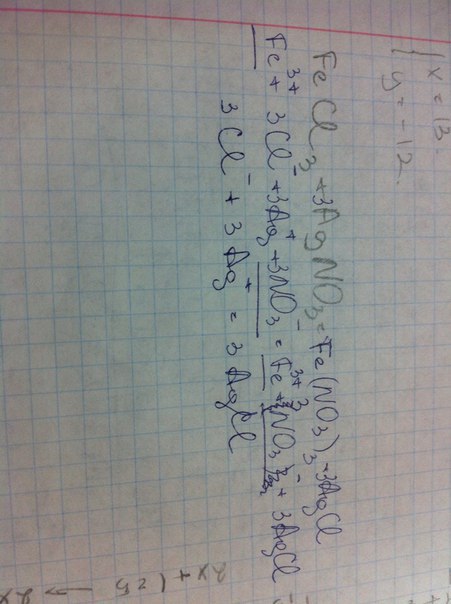 { x = 13
y = -12.
FeCl₃ + 3AgNO₃ = Fe(NO₃)₃ + 3AgCl
Fe³⁺ + 3Cl⁻ + 3Ag⁺ + 3NO₃⁻ = Fe³⁺ + 3NO₃⁻ + 3AgCl
3Cl⁻ + 3Ag⁺ = 3AgCl